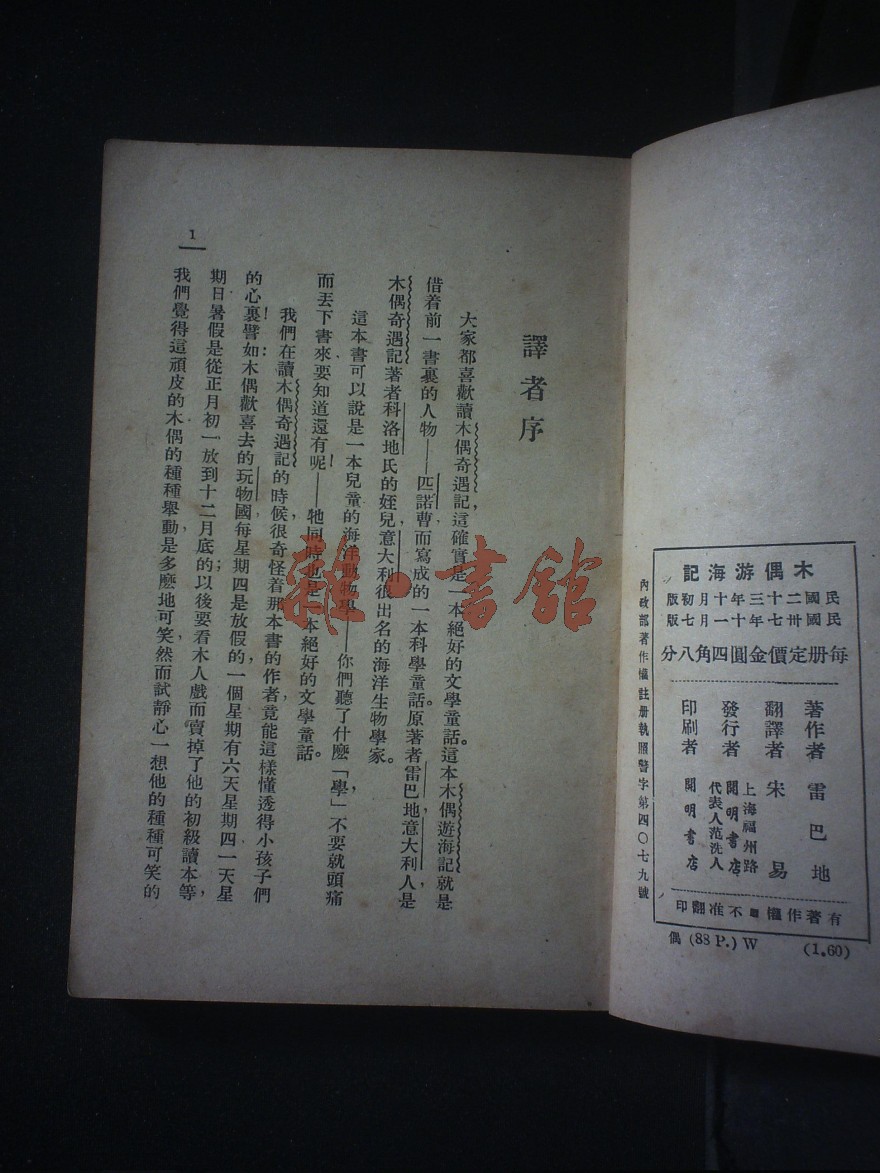 木偶游海記
民國二十三年十月初版
民國卅七年十一月七版
每册定價金圓四角八分
著作者 雷巴地
翻譯者 宋易
發行者 上海福州路 開明書店 代表人范洗人
印刷者 開明書店
有著作權 不准翻印
內政部著作權註册執照警字第四〇七九號
偶 (88 P.) W (1.60)
譯者序
大家都喜歡讀木偶奇遇記,這確實是一本絕好的文學童話。這本木偶遊海記,就是
借着前一書裏的人物——匹諾曹而寫成的一本科學童話。原著者雷巴地,意大利人,是
木偶奇遇記著者科洛地氏的姪兒,意大利很出名的海洋生物學家。
這本書可以說是一本兒童的海洋動物學——你們聽了什麼「學」,不要就頭痛
而丟下書來,要知道還有呢!——牠同時也是一本絕好的文學童話。
我們在讀木偶奇遇記的時候,很奇怪着那本書的作者竟能這樣懂透得小孩子們
的心裏!譬如:木偶歡喜去的玩物國,每星期四是放假的,一個星期有六天星期四一天星
期日,暑假是從正月初一放到十二月底的;以後要看木人戲而賣掉了他的初級讀本,等
我們覺得這頑皮的木偶的種種舉動,是多麼地可笑,然而試靜心一想他的種種可笑的
1
雜·書館